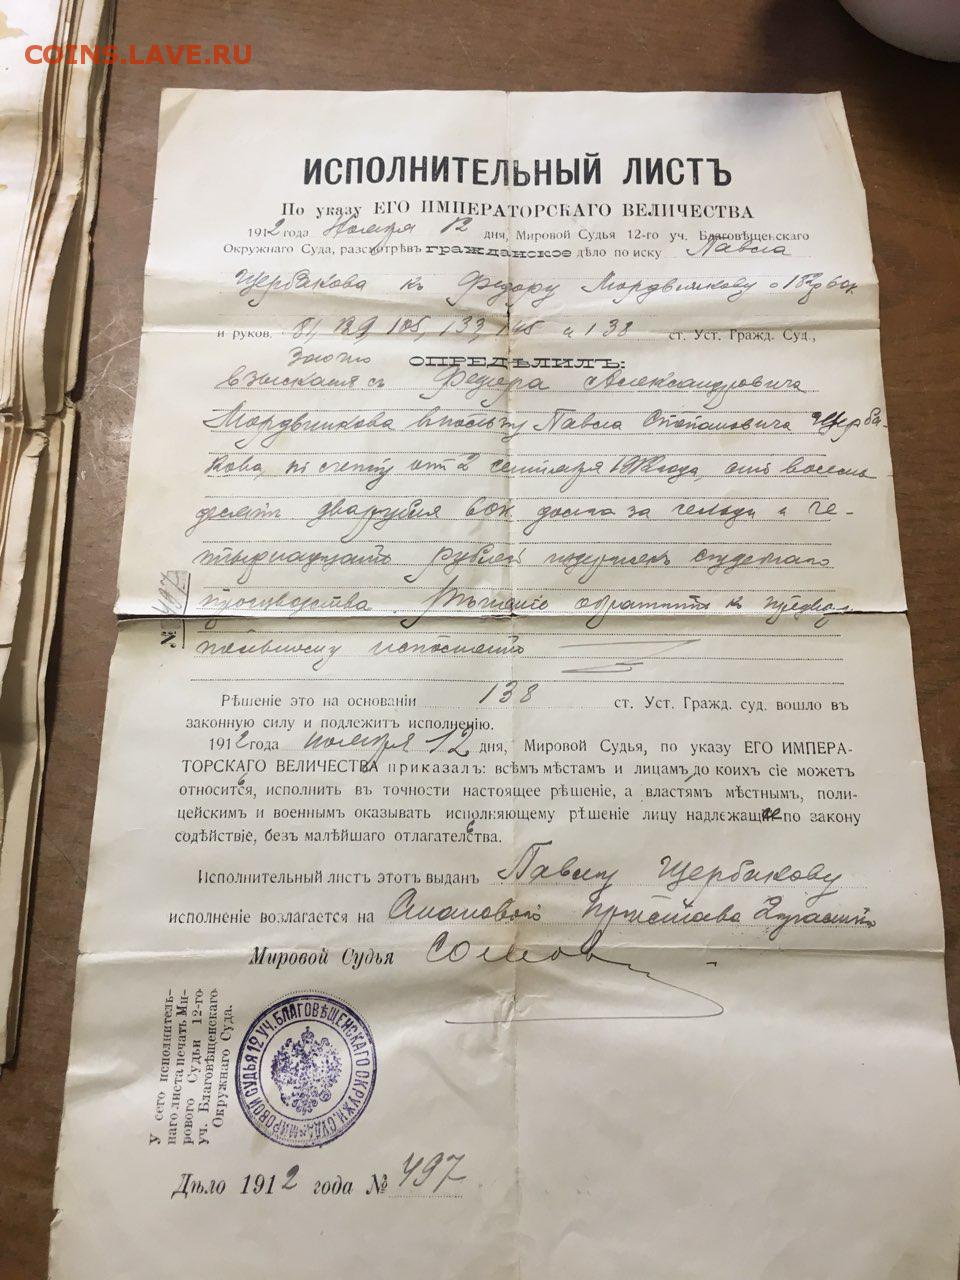 COINS.LAVE.RU
ИСПОЛНИТЕЛЬНЫЙ ЛИСТЪ
По указу ЕГО ИМПЕРАТОРСКАГО ВЕЛИЧЕСТВА
1912 года Ноября 12 дня, Мировой Судья 12-го уч. Благовѣщенскаго
Окружнаго Суда, разсмотрѣвъ гражданское дѣло по иску Павла
Щербакова къ Федору Мордвинкову о
и руков. 81, 129, 105, 133, 145 и 138 ст. Уст. Гражд. Суд.,
Заочно ОПРЕДѢЛИЛЪ:
взыскать съ Федора Александровича
Мордвинкова в пользу Павла Степановича Щерба-
кова, по счету от 2 сентября 1912 года, сто восемь
десятъ два рубля 60 к долга за и че-
тырнадцать рублей издержек судебнаго
производства. Рѣшение обратить к предвар
тельному исполнению
№ 497
Рѣшеніе это на основаніи 138 ст. Уст. Гражд. суд. вошло въ
законную силу и подлежитъ исполненію.
1912 года ноября 12 дня, Мировой Судья, по указу ЕГО ИМПЕРА-
ТОРСКАГО ВЕЛИЧЕСТВА приказалъ: всѣмъ мѣстамъ и лицамъ до коихъ сіе можетъ
относится, исполнить въ точности настоящее рѣшеніе, а властямъ мѣстнымъ, поли-
цейскимъ и военнымъ оказывать исполняющему рѣшеніе лицу надлежащее по закону
содѣйствіе, безъ малѣйшаго отлагателства.
Исполнительный листъ этотъ выданъ Павлу Щербакову
исполненіе возлагается на Станового Пристава 2 участка
Мировой Судья
У сего исполнитель-
наго листа печать Ми-
рового Судьи 12-го
уч. Благовѣщенскаго
Окружнаго Суда.
МИРОВОЙ СУДЬЯ 12 УЧ. БЛАГОВѢЩЕНСКАГО ОКРУЖН. СУДА
Дѣло 1912 года № 497